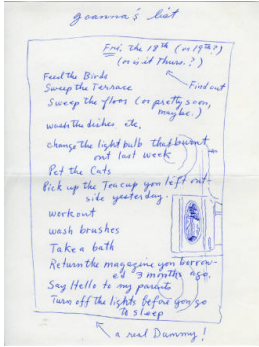 Joanna's list
Fri, the 18th (or 19th?)
(or is it Thurs.?)
Find out
Feed the Birds
Sweep the Terrace
Sweep the floor (or pretty soon,
maybe.)
wash the dishes etc,
change the light bulb that burnt
out last week
Pet the Cats
Pick up the Teacup you left out-
side yesterday.
workout
wash brushes
Take a bath
Return the magazine you borrow-
ed 3 months ago.
Say Hello to my parents
Turn off the lights before you go
to sleep
a real Dummy!